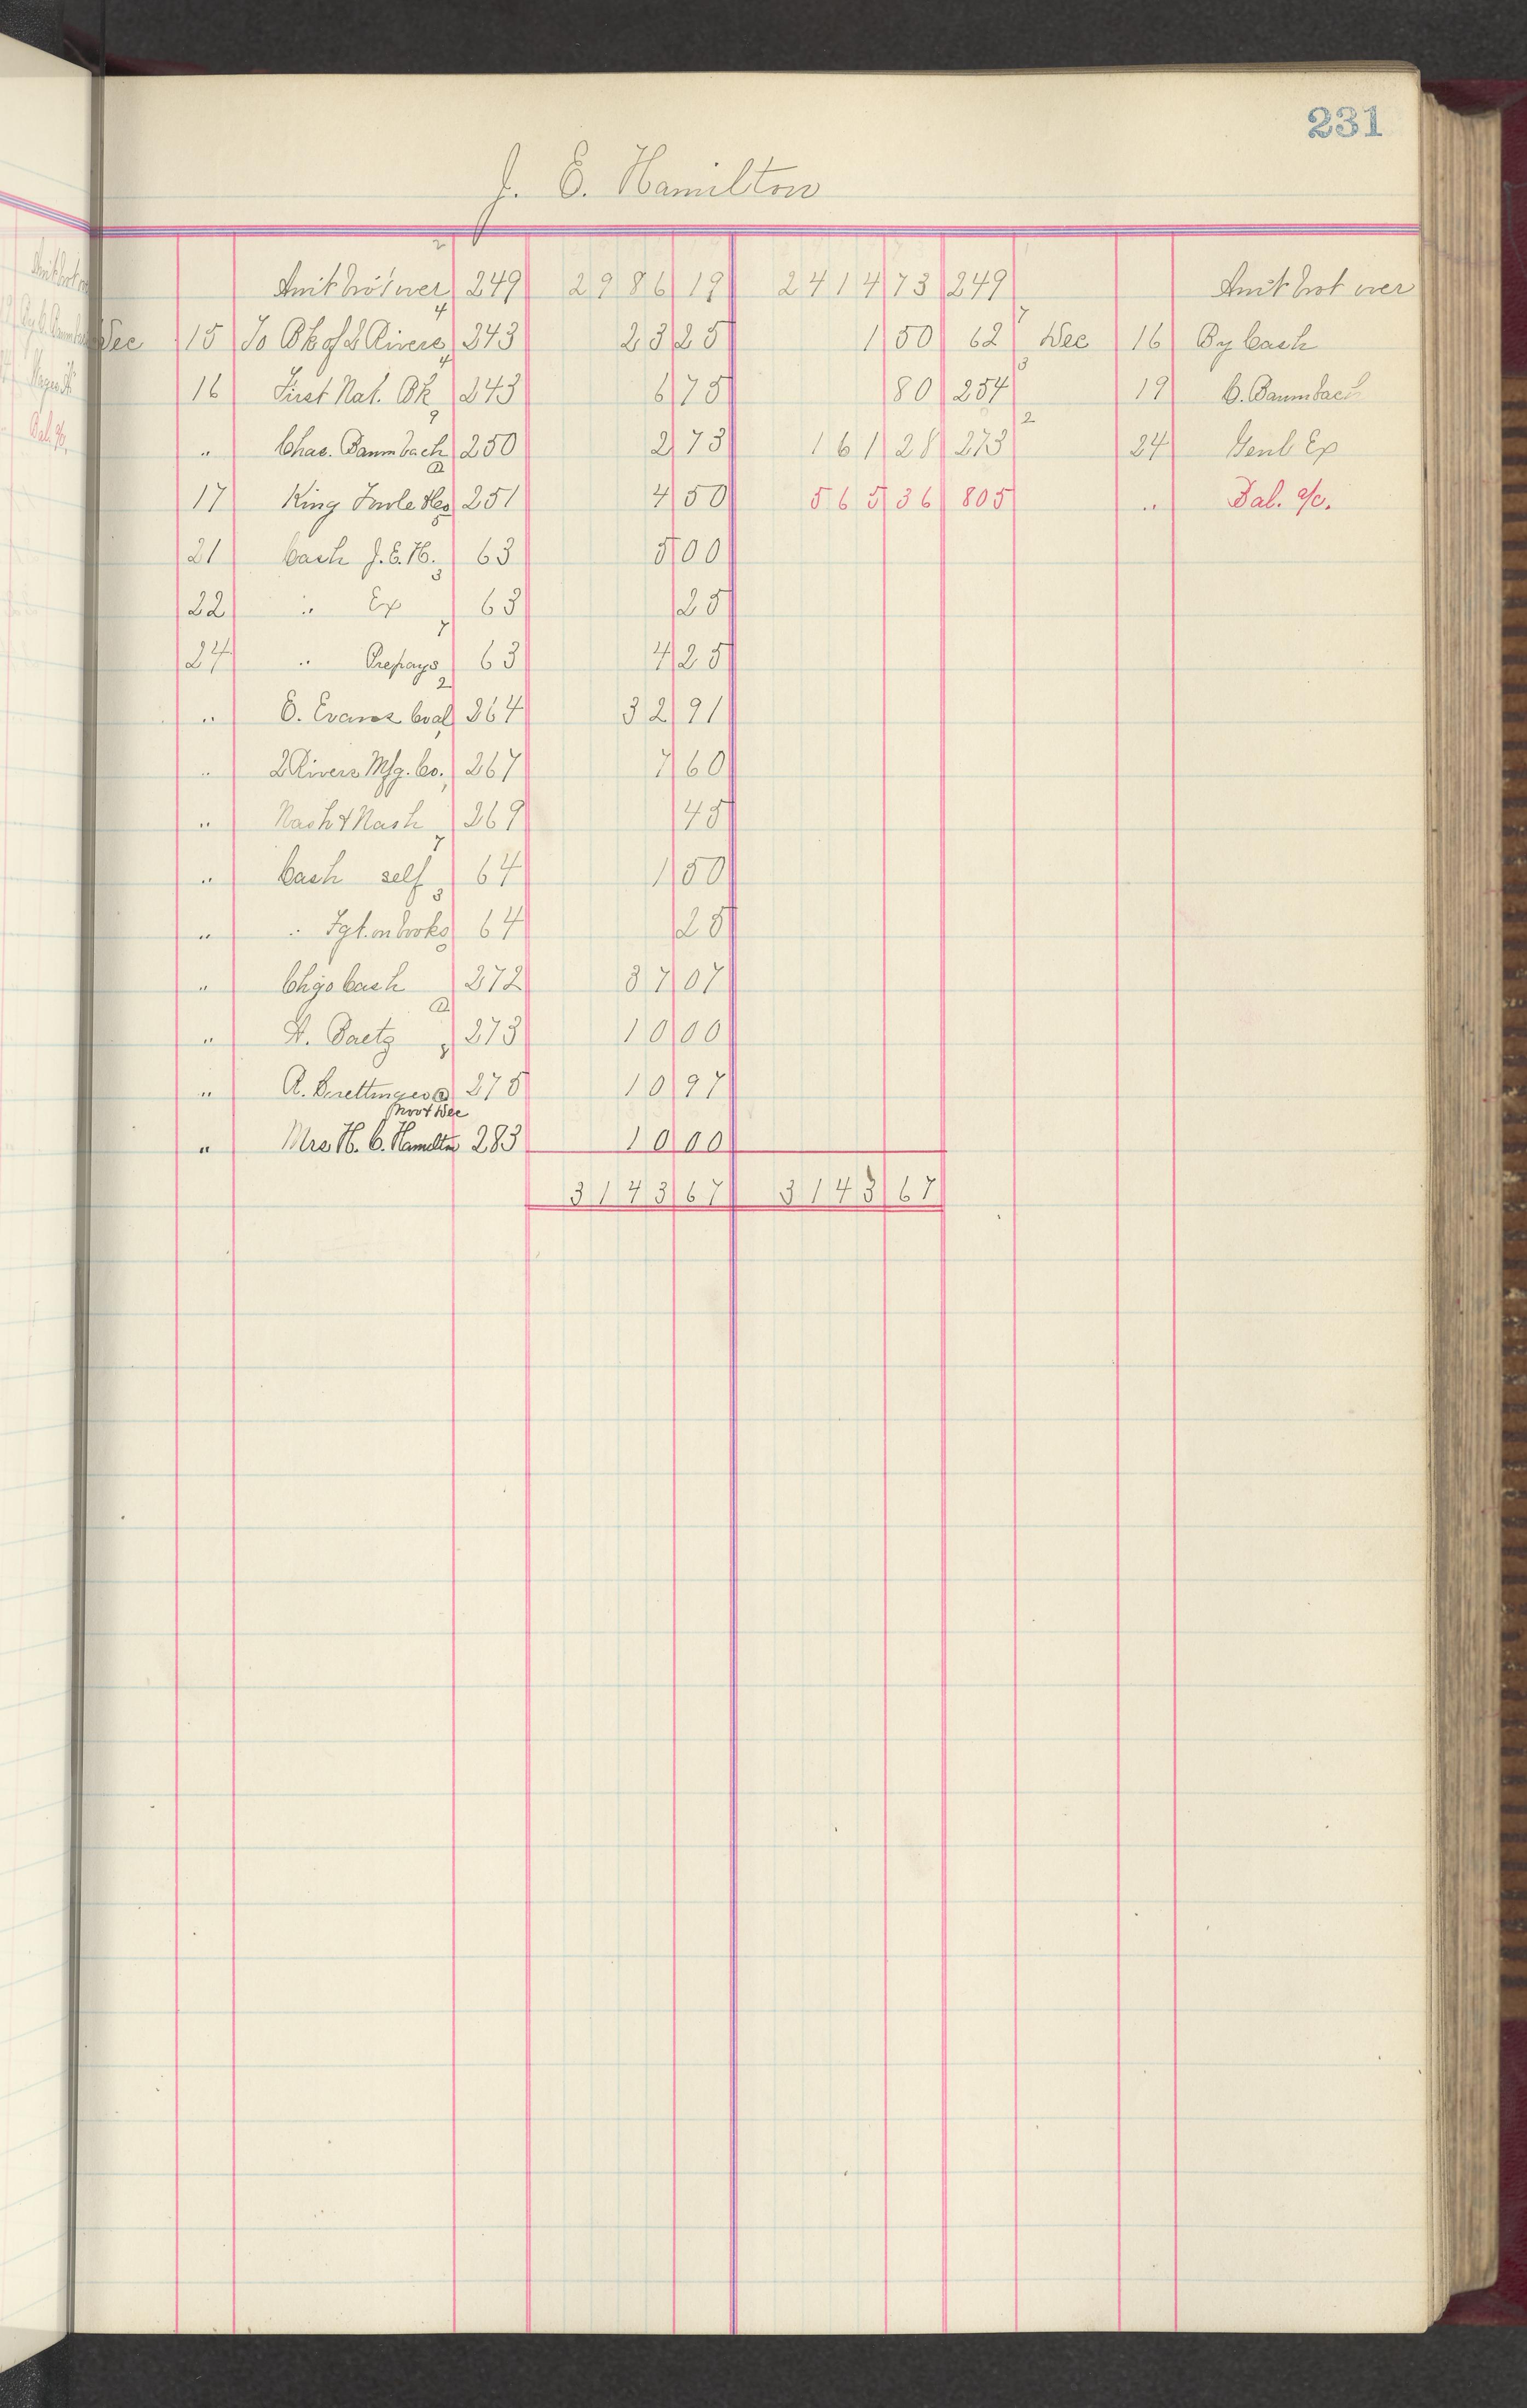 231
J. E. Hamilton
Amt brot over 249 2986 19 2414 73 249 Amt brot over
Dec 15 To Bk of 2 Rivers 243 23 25 1 50 62 Dec 16 By Cash
16 First Nat. Bk 243 6 75 80 254 19 C. Baumbach
" Chas. Baumbach 250 2 73 161 28 273 24 Genl Ex
17 King 251 4 50 565 36 805 " Bal. a/c.
21 Cash J.E.H. 63 5 00
22 " Ex 63 25
24 " Prepays 63 4 25
" E. Evans Coal 264 32 91
" 2 Rivers Mfg. Co. 267 7 60
" Nash & Nash 269 45
" Cash self 64 1 50
" " Fgt. on books 64 25
" Chgo Cash 272 37 07
" H. Baetz 273 10 00
" A. 275 10 97
Nov & Dec
" Mrs H. C. Hamilton 283 10 00
3143 67 3143 67